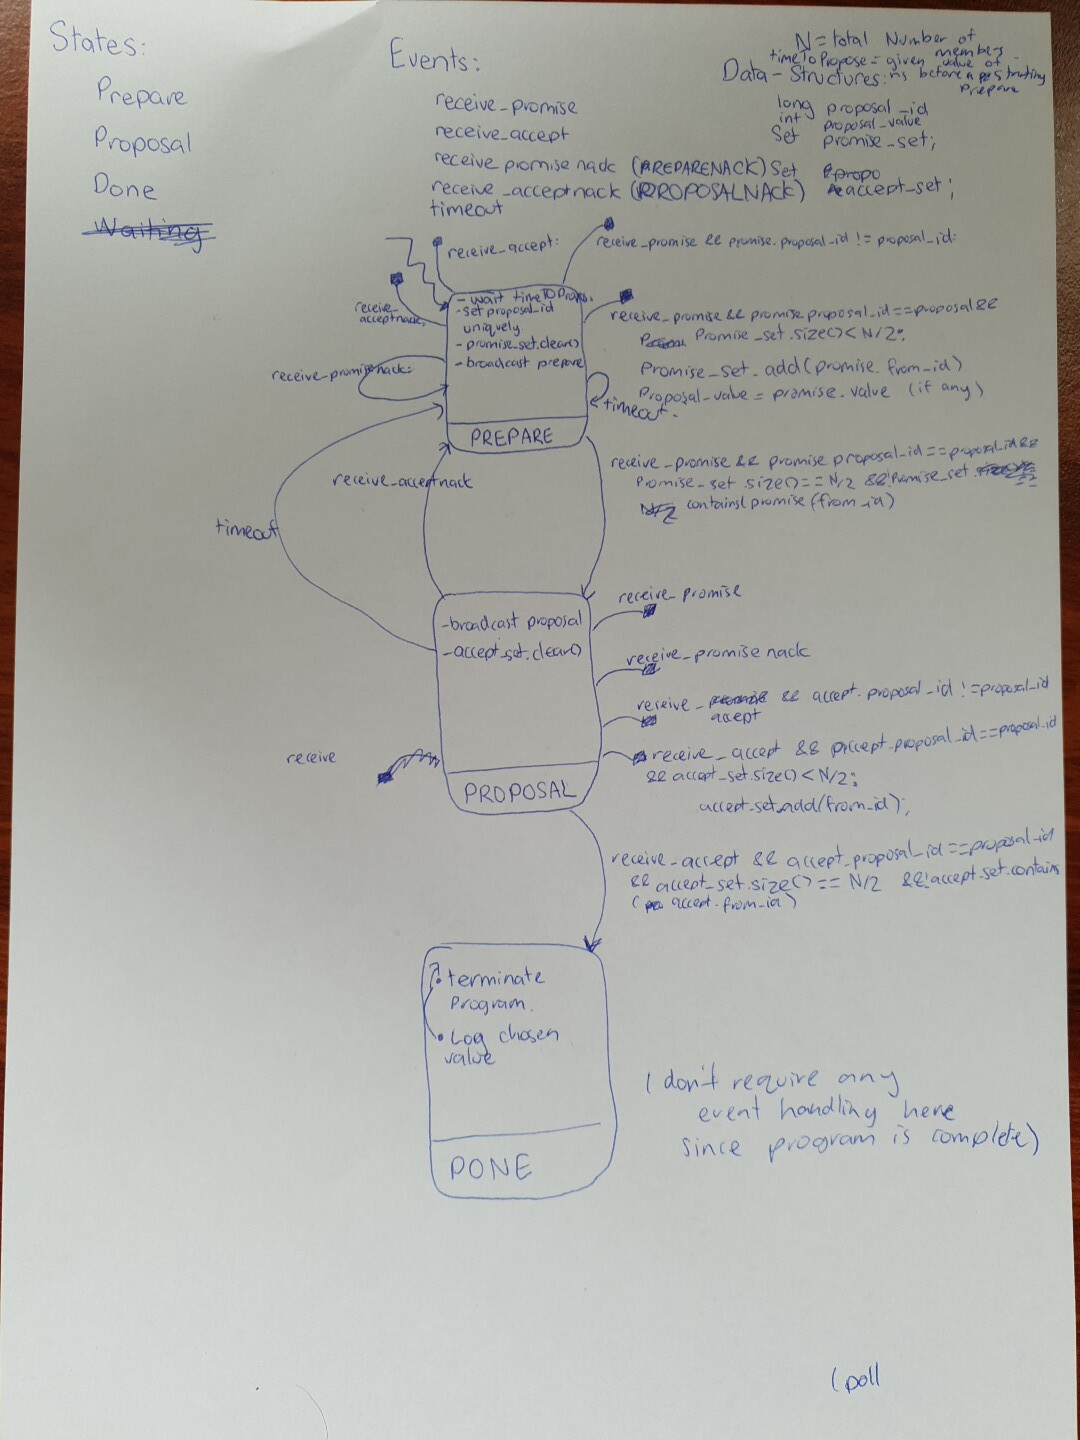 States:
Prepare
Proposal
Done
Waiting
Events:
receive_promise
receive_accept
receive promise nack (PREPARENACK)
receive_acceptnack (PROPOSALNACK)
timeout
N = total Number of
members
timeToPropose = given value of
Data-Structures: ms before restarting
Prepare
long proposal_id
int proposal_value
Set promise_set;
Set propo
accept_set;
receive_accept:
receive_promise && promise.proposal_id != proposal_id:
receive_
acceptnack:
- wait timeTOPropo.
- set proposal_id
uniquely
- promise_set.clear()
- broadcast prepare
PREPARE
receive_promise && promise proposal_id==proposal&&
Promise_set.size()<N/2:
Promise_set.add(promise.from_id)
Proposal-value = promise.value (if any)
receive_promisenack:
timeout.
receive_promise && promise proposal_id==proposal_id&&
Promise_set.size()==N/2 &&!Promise_set.
N/2 contains(promise(from_id)
receive_acceptnack
timeout
-broadcast proposal
-accept_set.clear()
PROPOSAL
receive_promise
receive_promise nack
receive_promise && accept.proposal_id !=proposal_id
accept
receive_accept && accept_proposal_id==proposal_id
&& accept_set.size()<N/2:
accept_set.add(from_id);
receive
receive_accept && accept_proposal_id==proposal_id
&& accept_set.size()==N/2 &&!accept_set.contains
( accept.from_id)
• terminate
Program.
• Log chosen
value
DONE
(don't require any
event handling here
since program is complete)
(poll